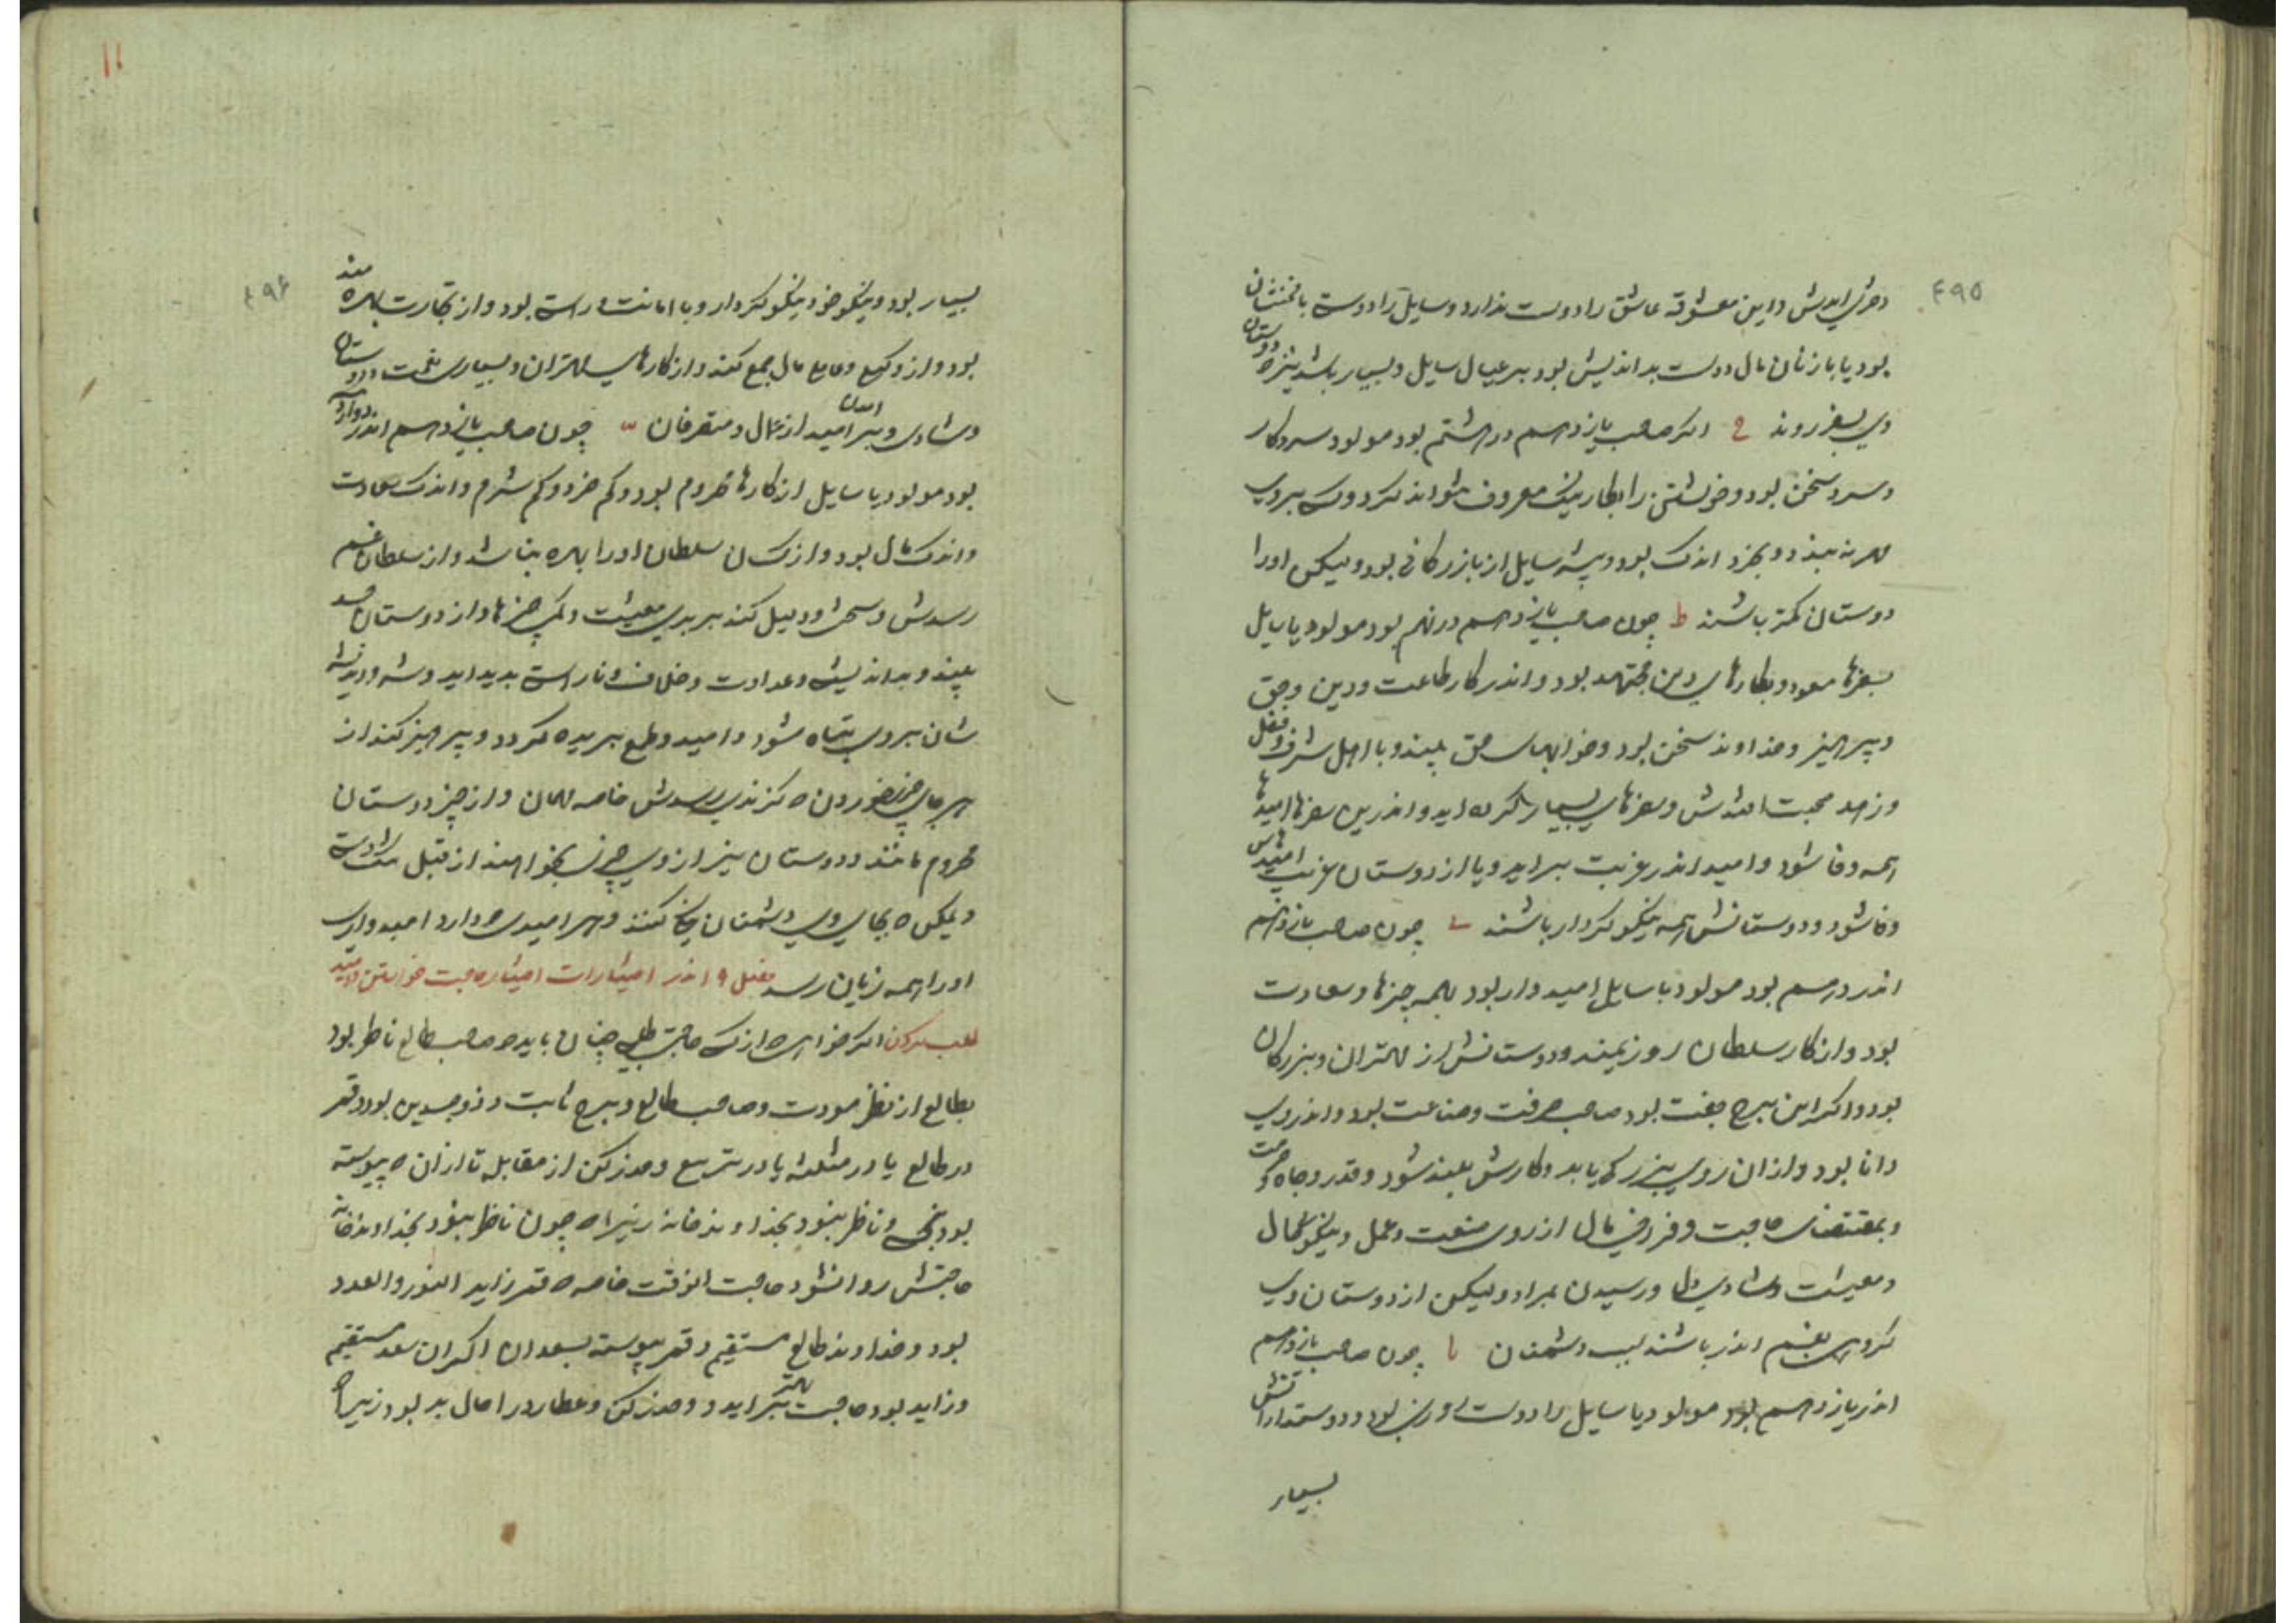 ۴۹۵
معشوقه عاشق را دوست ندارد و سایل را دوست با مخنثان
بود یا با زنان مال دوست بد اندیش بود بر عیال سایل و بسیار باشد دوستان
وی بسفر روند ح اگر صاحب یازدهم در هشتم بود مولود سرد کار
و سرد سخن بود و خویشتن را بکار نیک معروف نتواند کرد و کسی بر وی
مهر نه بندد و بخرد اندک بود و پیشه سایل از بازرگانی بود و لیکن او را
دوستان کمتر باشند ط چون صاحب یازدهم در نهم بود مولود یا سایل
بسفرها و بکارهای دین مجتهد بود و اندر کار طاعت و دین و حق
و پرهیز و خداوند سخن بود و خوابهای حق بیند و با اهل شرف و فضل
و زهد محبت افتدش و سفرهای بسیار کرده اید و اندرین سفرها امیدها
همه وفا شود و امید اندر غربت بر اید و یا از دوستان غریب امیدهاش
وفا شود و دوستانش همه نیکو کردار باشند ی چون صاحب یازدهم
اندر دهم بود مولود یا سایل امیدوار بود بهمه چیزها و سعادت
بود و از کار سلطان روز بیند و دوستانش از مهتران و بزرگان
بود و اگر این برج جفت بود صاحب حرفت و صناعت بود و اندر وی
دانا بود و از ان روی بزرگی یابد و کارش بلند شود و قدر و جاه و حرمت
و بمقتضای حاجت و فزونی مال از روی صنعت و عمل و نیکو حال
و معیشت و شادی دل و رسیدن بمراد و لیکن از دوستان وی
گروهی بغم اندر باشند بسبب دشمنان یا چون صاحب یازدهم
اندر یازدهم بود مولود یا سایل را دوست بود و دوستدارانش
بسیار
۱۱
۴۹۶
بسیار بود و نیکو خو و نیکو کردار و با امانت و راست بود و از تجارت بهره مند
بود و از مال جمع کند و از کارهای مهتران و بسیاری نعمت و دوستان
و شادی و بر امدن امید از عمال و متصرفان یب چون صاحب یازدهم اندر دوازدهم
بود مولود یا سایل از کارها محروم بود و کم خرد و کم شرم و اندک سعادت
و اندک مال بود و از کسان سلطان او را بهره نباشد و از سلطان غم
رسدش و دلیل کند بر بدی معیشت و کمی چیزها و از دوستان حسد
بیند و بد اندیشی و عداوت و خلاف و ناراستی پدید اید
شان بر وی تباه شود و امید و طمع بریده گردد و پرهیز کند از
هر جای چیز خوردن که گزندی رسدش خاصه مهمان و از چیز دوستان
محروم ماند و دوستان نیز از وی چیزی نخواهند از قبل
و لیکن بجای وی دشمنان کنند و هر امیدی دارد امیدواری
او را همه زیان رسد فصل ۹ اندر اختیارات اختیار حاجت خواستن و امید
طلب کردن اگر خواهی از کسی حاجت طلبی چنان باید که صاحب طالع ناظر بود
بطالع از نظر مودت و صاحب طالع و برج ثابت و ذوجسدین بود و قمر
در طالع یا در مثلثه یا در تربیع و حذر کن از مقابله تا از ان پیوسته
بود بنحس و ناظر نبود بخداوند خانه زیرا که چون ناظر نبود بخداوند خانه
حاجتش روا نشود حاجت انوقت خاصه که قمر زاید النور و العدد
بود و خداوند طالع مستقیم و قمر پیوسته بسعد اگر ان سعد مستقیم
و زاید بود حاجت بهتر براید و حذر کن و عطارد در احوال بد بود زیرا که